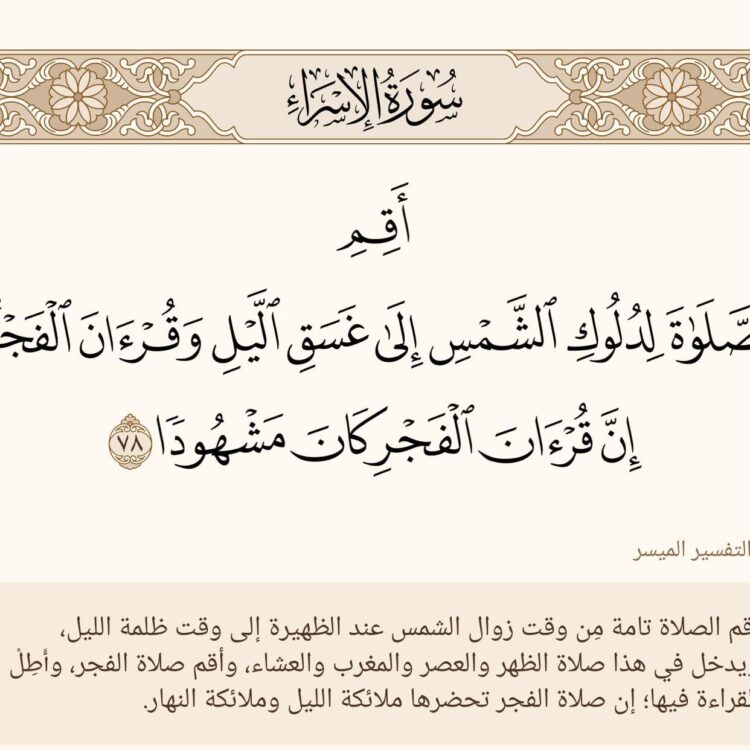 سُورَةُ الإِسْرَاءِ
أَقِمِ
ٱلصَّلَوٰةَ لِدُلُوكِ ٱلشَّمْسِ إِلَىٰ غَسَقِ ٱلَّيْلِ وَقُرْءَانَ ٱلْفَجْرِ
إِنَّ قُرْءَانَ ٱلْفَجْرِ كَانَ مَشْهُودًا ٧٨
التفسير الميسر
قم الصلاة تامة مِن وقت زوال الشمس عند الظهيرة إلى وقت ظلمة الليل،
يدخل في هذا صلاة الظهر والعصر والمغرب والعشاء، وأقم صلاة الفجر، وأطِلْ
لقراءة فيها؛ إن صلاة الفجر تحضرها ملائكة الليل وملائكة النهار.